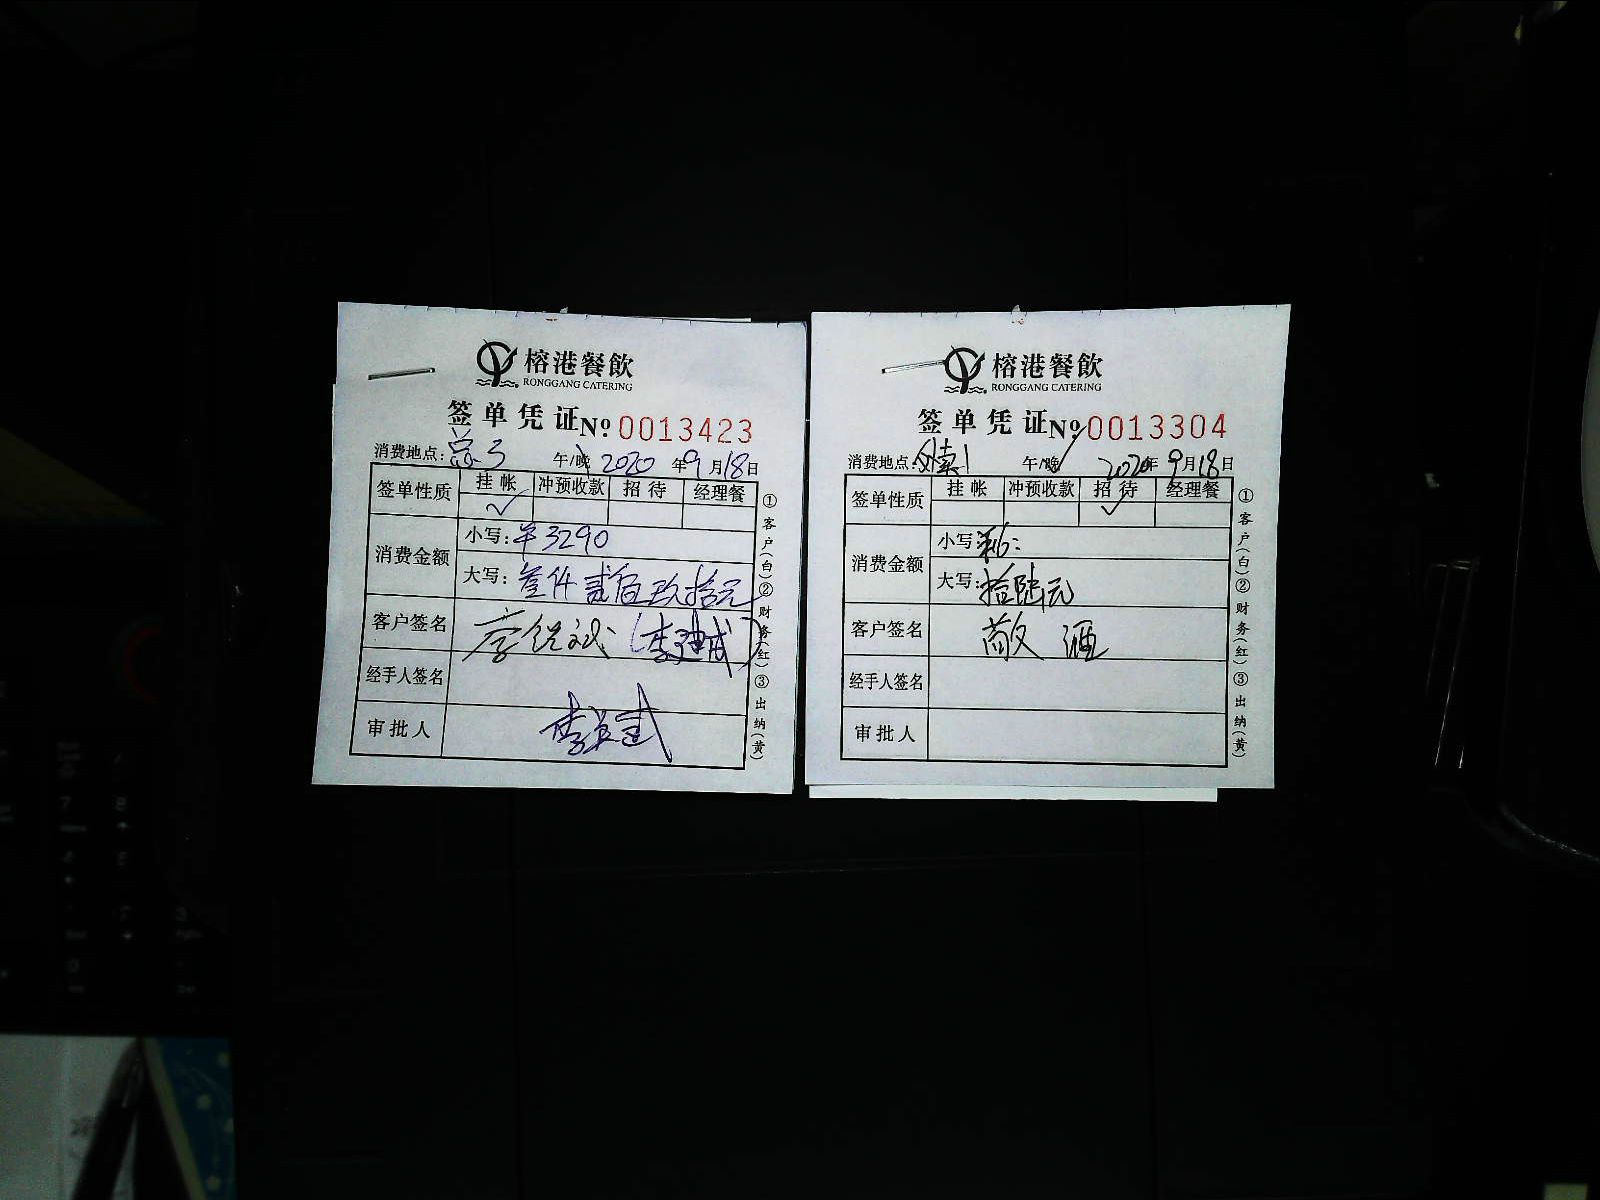 榕港餐飲
RONGGANG CATERING
签单凭证 Nº 0013423
消费地点: 午/晚 2020年9月18日
签单性质 挂帐 冲预收款 招待 经理餐
✓
消费金额
小写: ¥3290
大写: 叁仟贰佰玖拾元
客户签名
经手人签名
审批人
①客户(白)②财务(红)③出纳(黄)
榕港餐飲
RONGGANG CATERING
签单凭证 Nº 0013304
消费地点: 午/晚 2020年9月18日
签单性质 挂帐 冲预收款 招待 经理餐
✓
消费金额
小写:
大写: 拾陆元
客户签名 敬酒
经手人签名
审批人
①客户(白)②财务(红)③出纳(黄)